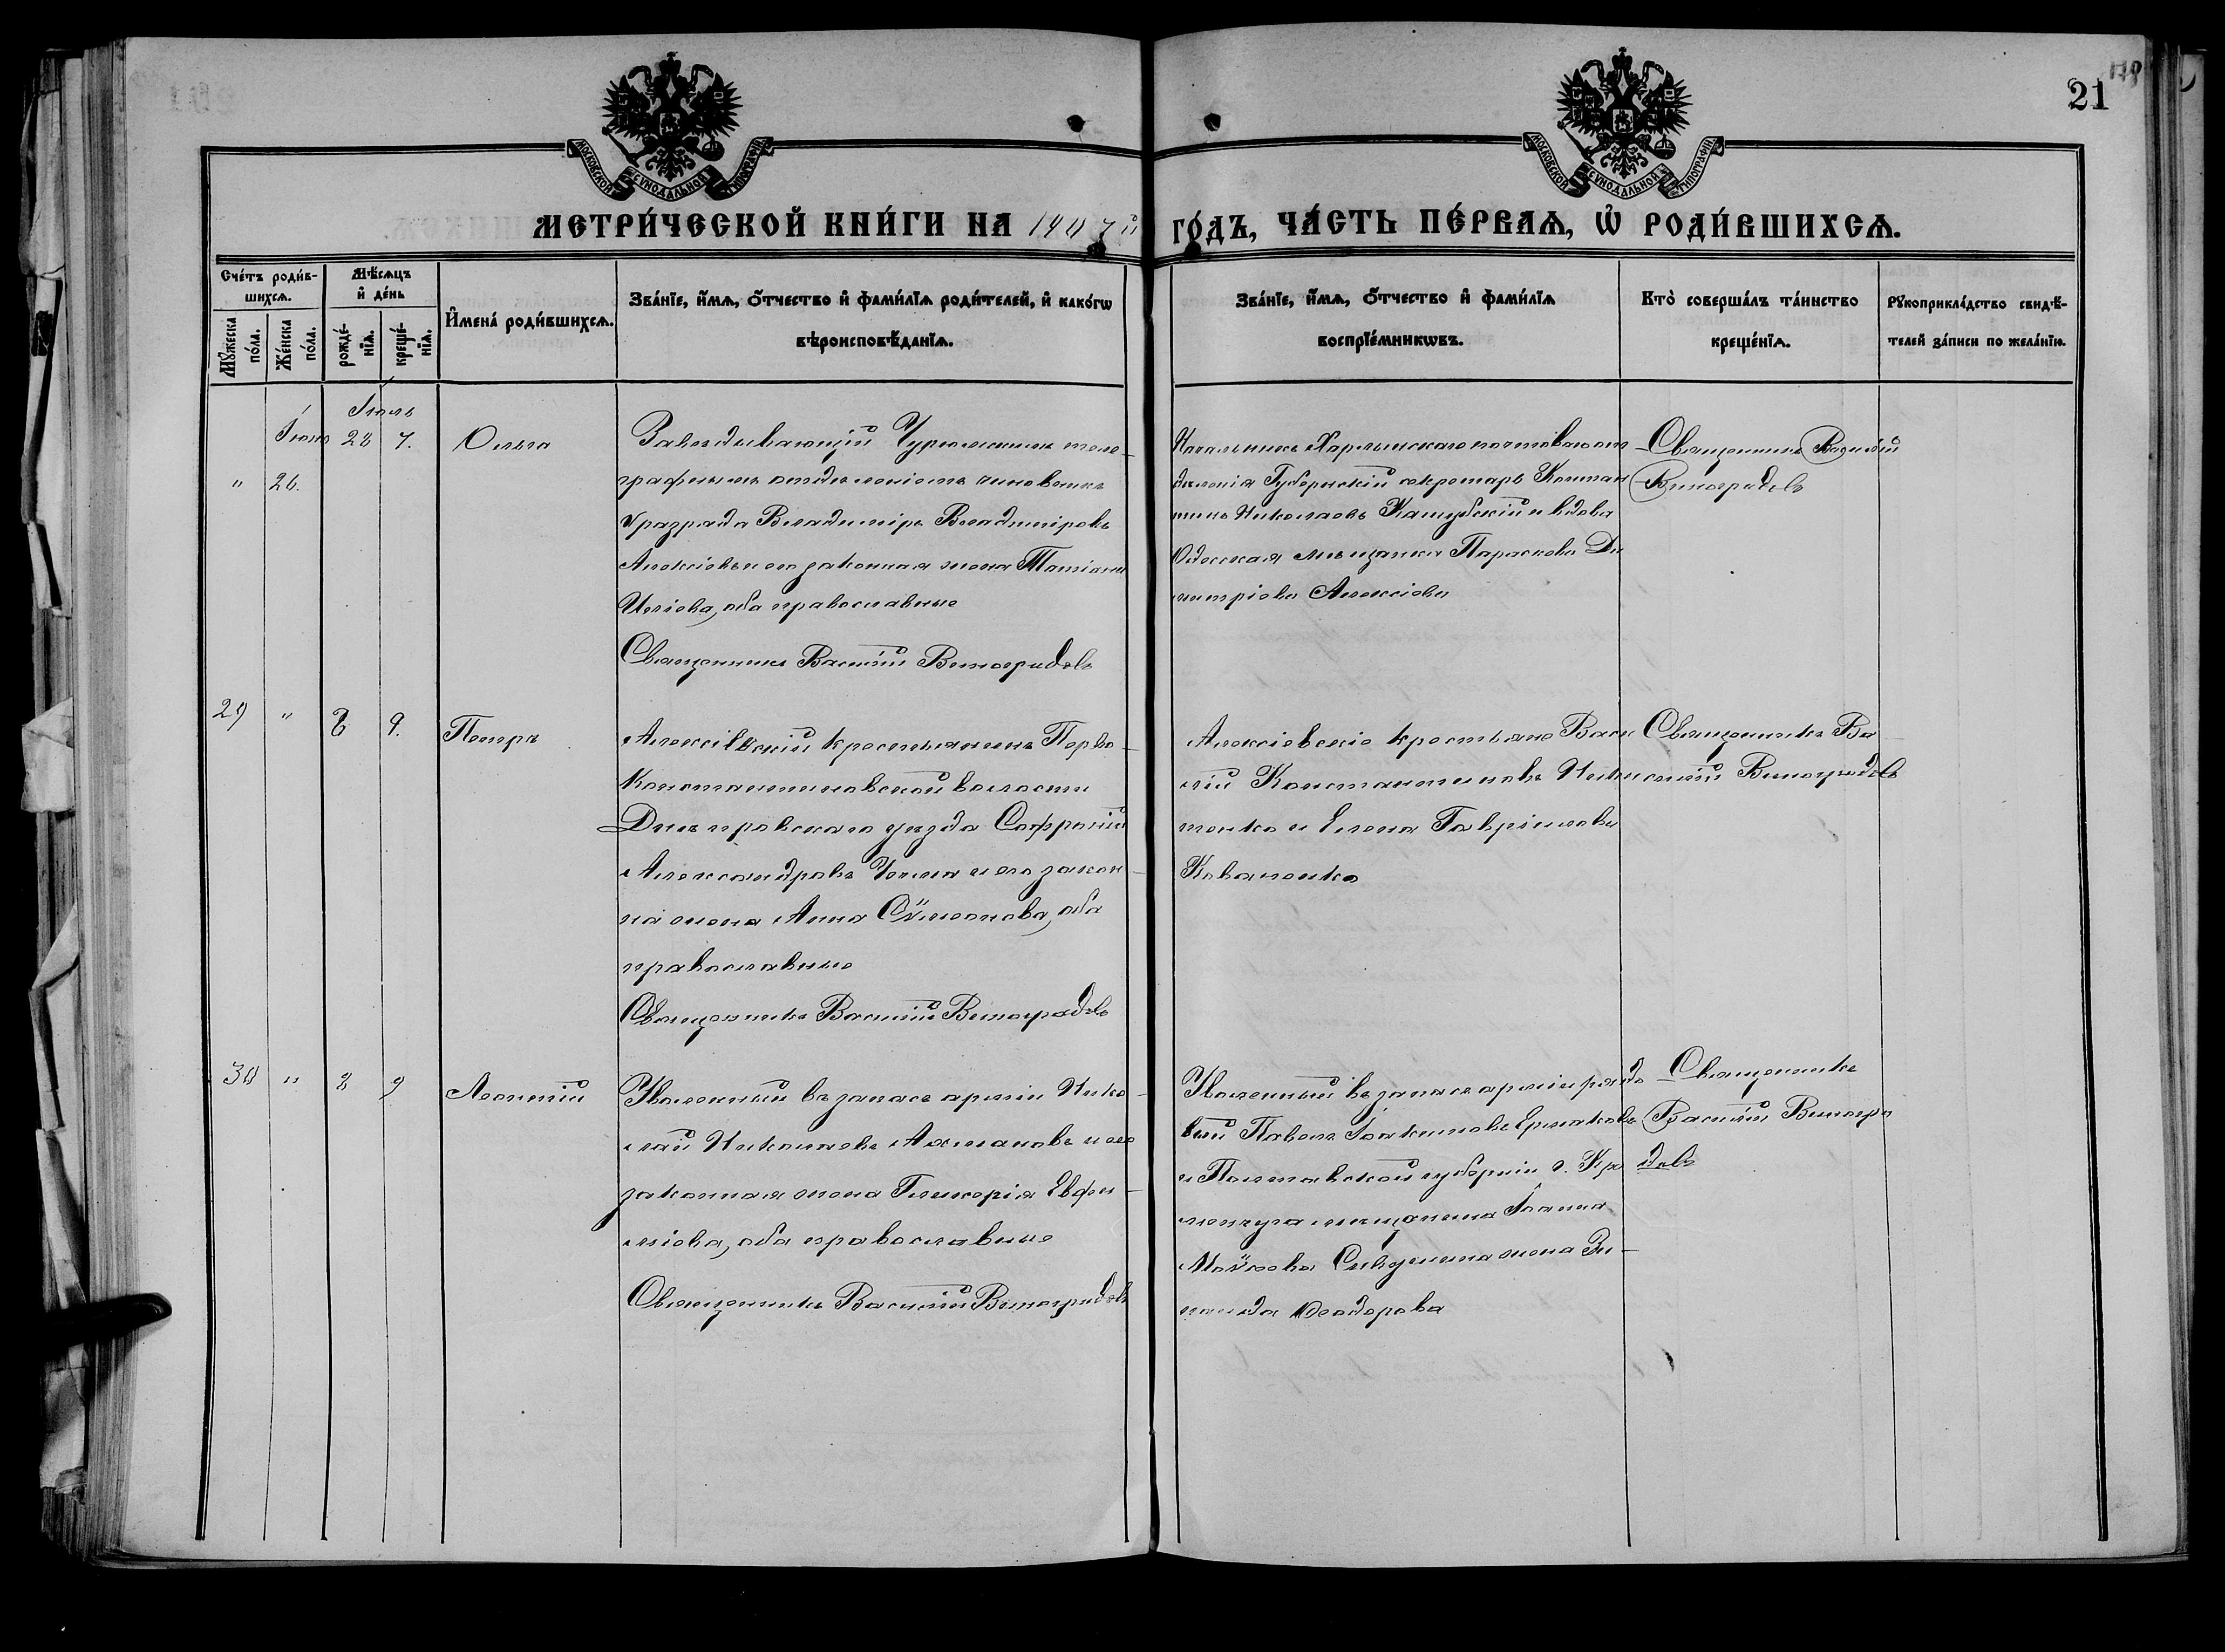 21
МОСКОВСКОЙ СѴНОДАЛЬНОЙ ТИПОГРАФІИ
МОСКОВСКОЙ СѴНОДАЛЬНОЙ ТИПОГРАФІИ
МЕТРИ́ЧЕСКОЙ КНИ́ГИ НА 1907й ГО́ДЪ, ЧА́СТЬ ПЕ́РВАѦ, Ѡ҆ РОДИ́ВШИХСѦ.
Сче́тъ роди́в-
шихсѧ.
Мѹ́жеска по́ла.
Же́нска по́ла.
Мѣ́сѧцъ
и҆ де́нь
рожде́-
нїѧ.
креще́-
нїѧ.
И҆мена̀ роди́вшихсѧ.
Зва́нїе, и҆́мѧ, ѻ҆́тчество и҆ фами́лїѧ роди́телей, и҆ како́гѡ
вѣроисповѣ́данїѧ.
Зва́нїе, и҆́мѧ, ѻ҆́тчество и҆ фами́лїѧ
воспрїе́мникѡвъ.
Кто̀ соверша́лъ та́инство
креще́нїѧ.
Рѹкоприкла́дство свидѣ́-
телей за́писи по жела́нїю.
Іюль
Іюнь 28 7. Ольга
" 26.
Завѣдывающій Чурюмскимъ теле-
графнымъ отдѣленіемъ чиновникъ
V разряда Владиміръ Владиміровъ
Алексіевъ и его законная жена Татіана
Иліева, оба православные
Священникъ Василій Виноградовъ
Начальникъ почтоваго от
дѣленія Губернскій секретарь Констан
тинъ Николаевъ Кашубскій и вдова
Одесская мѣщанка Параскева Ди
митріева Алексіева
Священникъ Василій
Виноградовъ
29 " 8 9. Петръ
Алексіевскій крестьянинъ Перво-
Константиновской волости
Днѣпровскаго уѣзда Софроній
Александровъ и его закон-
ная жена Анна Сѵмеонова, оба
православные
Священникъ Василій Виноградовъ
Алексіевскіе крестьяне Васи
лій Константиновъ Ники
тенко и Елена Гавріилова
Коваленко
Священникъ Ва-
силій Виноградовъ
30 " 8 9 Леонтій
Уволенный въ запасъ арміи Нико-
лай Николаевъ Ахмановъ и его
законная жена Гликерія Евфи-
міева, оба православные
Священникъ Василій Виноградовъ
Уволенный въ запасъ арміи рядо
вый Павелъ Іоакимовъ Ермаковъ
и Полтавской губерніи г. Кре
менчуга мѣщанина Іоанна
Моѵсеева жена Зи-
наида Ѳеодорова
Священникъ
Василій Виногра
довъ